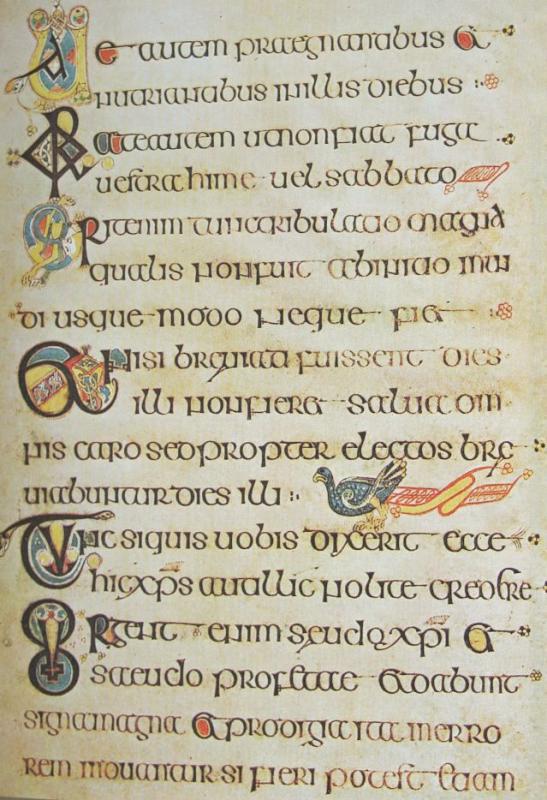 Uae autem praegnantibus et
nutriantibus in illis diebus
Orate autem ut non fiat fuga
uestra hime uel sabbato
Erit enim tunc tribulatio magna
qualis non fuit ab initio mun
di usque modo neque fiet
Et nisi breuiati fuissent dies
illi non fieret salua om
nis caro sed propter electos bre
uiabuntur dies illi
Tunc si quis uobis dixerit ecce
hic xps aut illic nolite credere
Surgent enim seudo xpi et
saeudo profetae et dabunt
signa magna et prodigia ita in erro
rem mouantur si fieri potest etiam